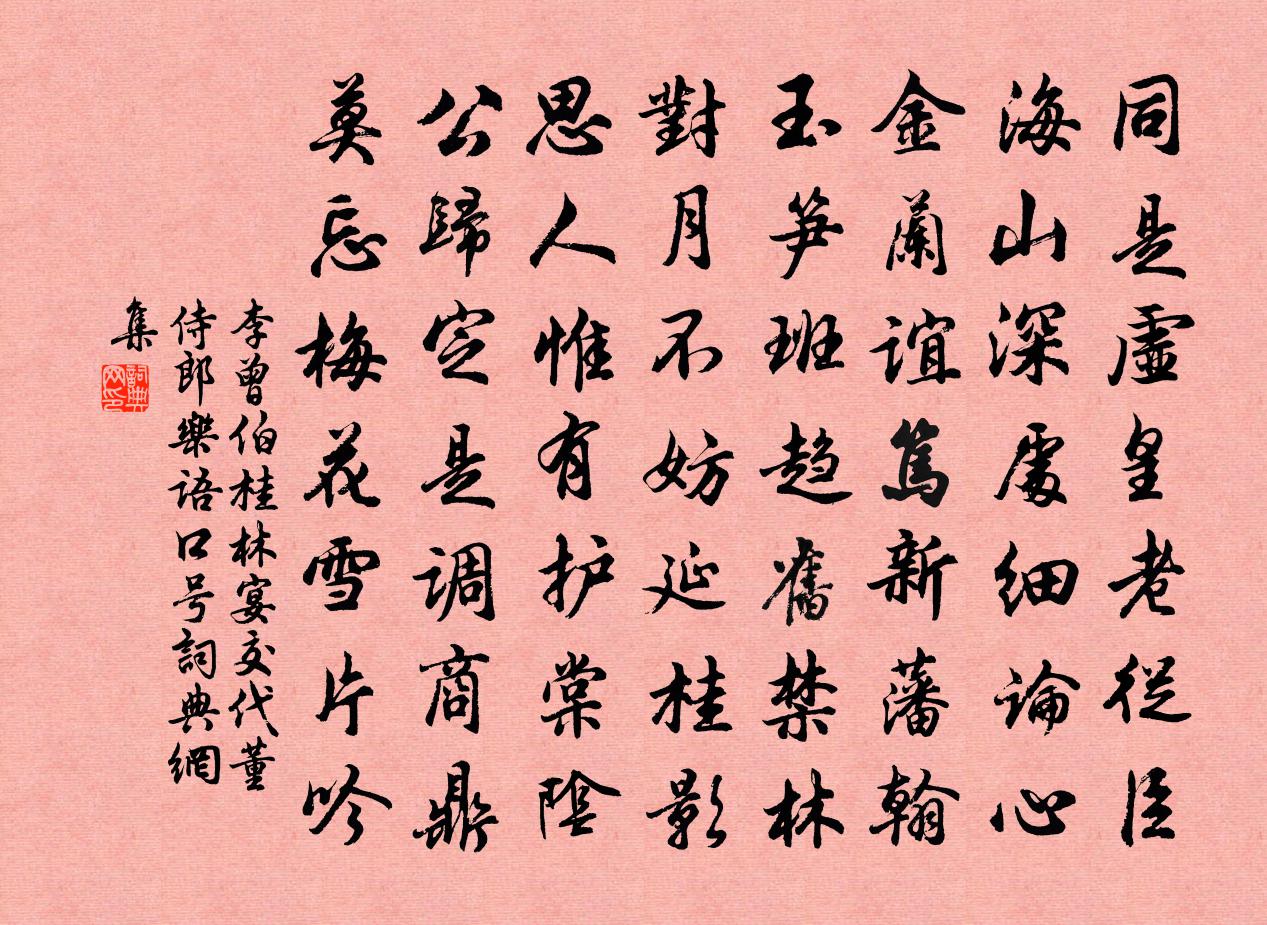 同是虛皇老從臣
海山深處細論心
金蘭誼篤新藩翰
玉笋班趋舊禁林
對月不妨延桂影
思人惟有护棠陰
公歸定是調商鼎
莫忘梅花雪片吟
李曾伯桂林宴交代董
侍郎樂語口号詞典網
集
詞典
网印